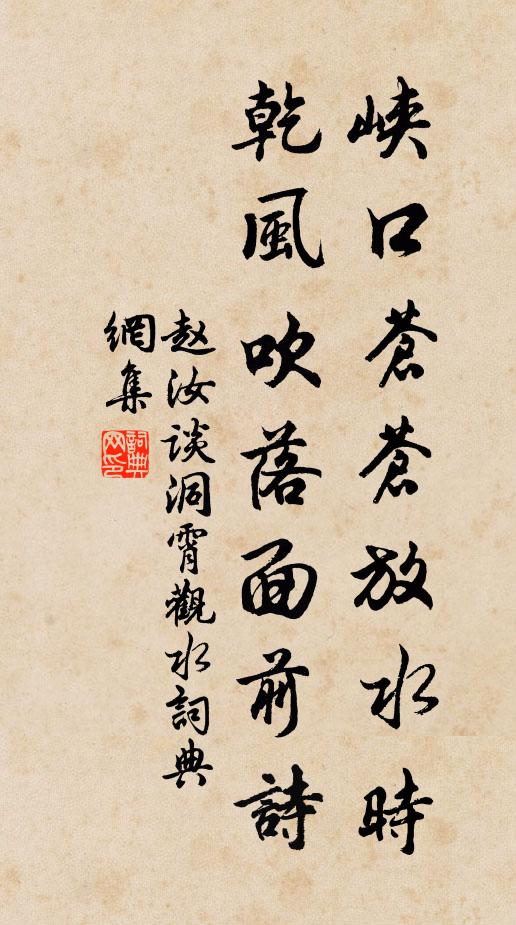 峽口蒼蒼放水時
乾風吹落面前詩
赵汝谈洞霄觀水詞典
網集
詞典
网印